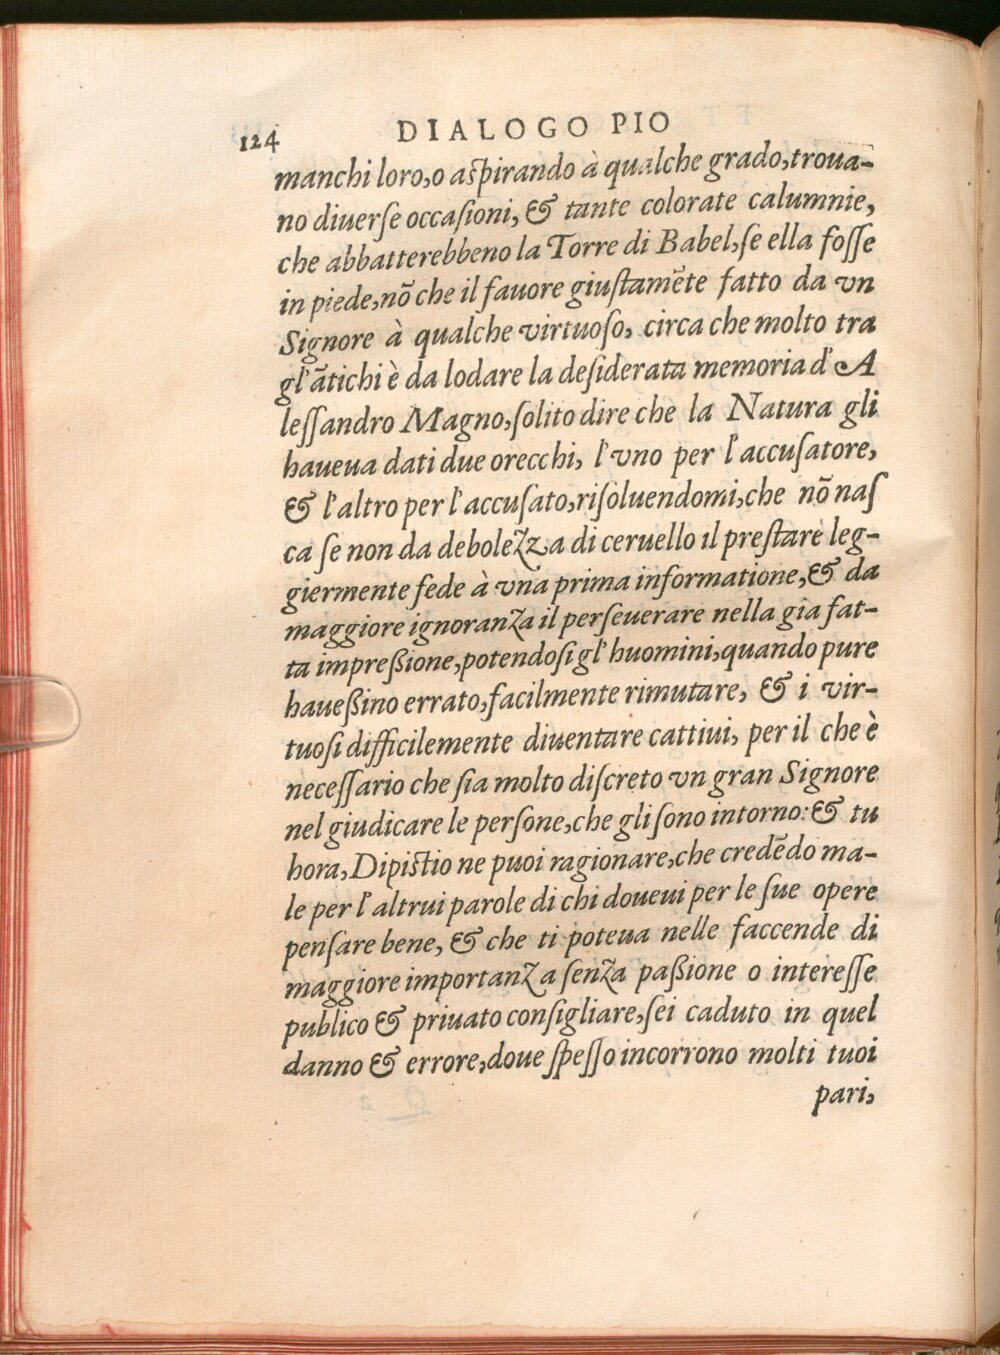 124 DIALOGO PIO
manchi loro, o aſpirando à qualche grado, troua-
no diuerſe occaſioni, & tante colorate calumnie,
che abbatterebbeno la Torre di Babel, ſe ella foſſe
in piede, nõ che il fauore giuſtamẽte fatto da vn
Signore à qualche virtuoſo, circa che molto tra
gl'ãtichi è da lodare la deſiderata memoria d'A
leſſandro Magno, ſolito dire che la Natura gli
haueua dati due orecchi, l'vno per l'accuſatore,
& l'altro per l'accuſato, riſoluendomi, che nõ naſ
ca ſe non da debolezza di ceruello il preſtare leg-
giermente fede à vna prima informatione, & da
maggiore ignoranza il perſeuerare nella gia fat-
ta impreßione, potendoſi gl'huomini, quando pure
haueßino errato, facilmente rimutare, & i vir-
tuoſi difficilemente diuentare cattiui, per il che è
neceſſario che ſia molto diſcreto vn gran Signore
nel giudicare le perſone, che gli ſono intorno: & tu
hora, Dipiſtio ne puoi ragionare, che credẽdo ma-
le per l'altrui parole di chi doueui per le ſue opere
penſare bene, & che ti poteua nelle faccende di
maggiore importanza ſenza paßione o intereſſe
publico & priuato conſigliare, ſei caduto in quel
danno & errore, doue ſpeſſo incorrono molti tuoi
pari,